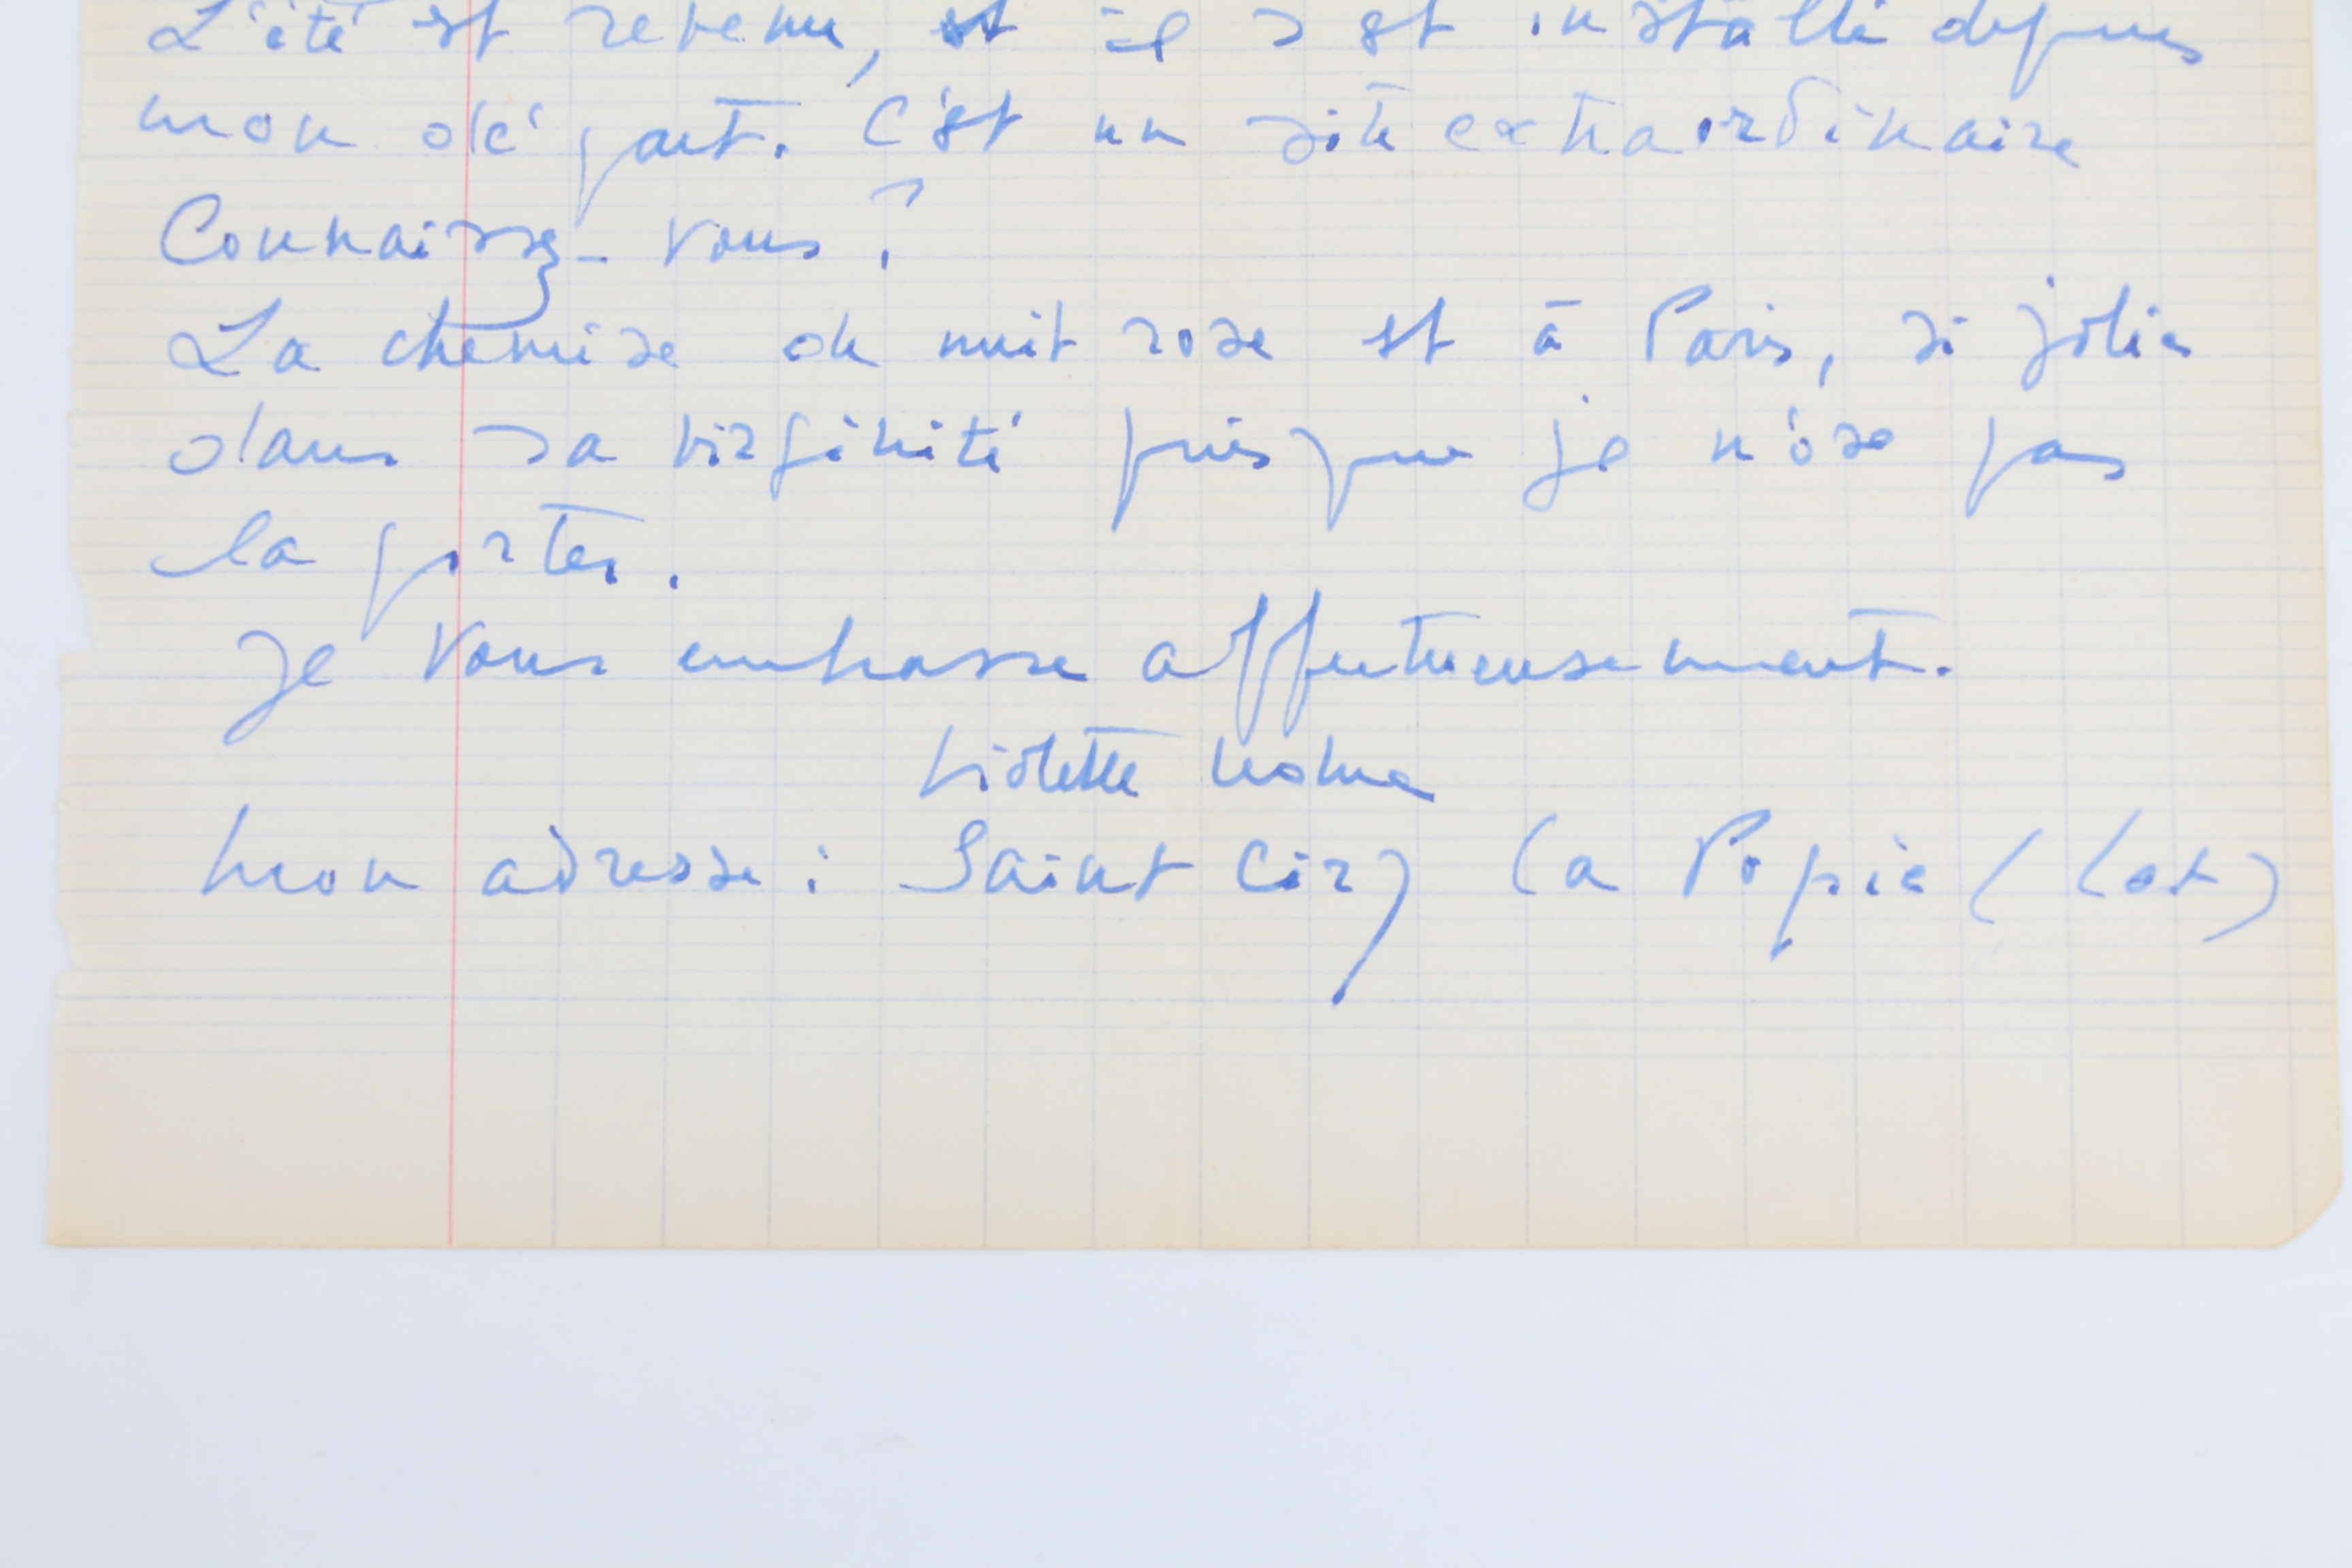 L'été est revenu, et il s'est installé depuis
mon départ. C'est un site extraordinaire
Connaissez-vous ?
La chemise de nuit rose est à Paris, si jolie
dans sa virginité puisque je n'ose pas
la porter.
Je vous embrasse affectueusement.
Violette Leduc
Mon adresse : Saint Cirq la Popie (Lot)